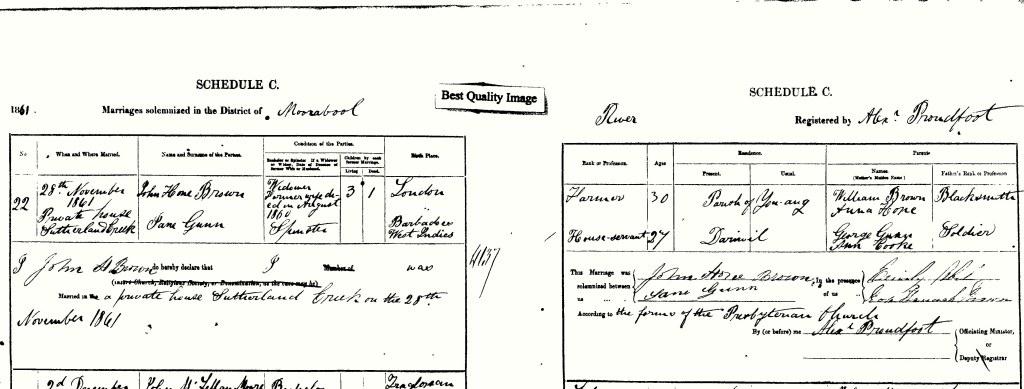 SCHEDULE C.
1861. Marriages solemnized in the District of Moorabool
Best Quality Image
SCHEDULE C.
River Registered by Alexr Proudfoot
No
When and Where Married.
Name and Surname of the Parties.
Condition of the Parties.
Bachelor or Spinster. If a Widower or Widow, Date of Decease of former Wife or Husband.
Children by each former Marriage.
Living Dead
Birth Place.
Rank or Profession.
Ages
Residence.
Present. Usual.
Parents
Names. (Mother's Maiden Name)
Father's Rank or Profession
22
28th November
1861
Private house
Sutherland Creek
John Hone Brown
Jane Gunn
Widower
Former wife de-
ed in August
1860
Spinster
3 1
London
Barbadoes
West Indies
Farmer 30 Parish of You-ang
William Brown
Anna Hone
Blacksmith
House-servant 27 Darriwil
George Gunn
Ann Cooke
Soldier
I John H Brown do hereby declare that I Member of was
4137
Married in the a private house Sutherland Creek on the 28th
November 1861
This Marriage was solemnized between us
John Hone Brown,
Jane Gunn
In the presence of us
According to the forms of the Presbyterian Church
By (or before) me Alexr Proudfoot
Officiating Minister,
or
Deputy Registrar
2d December
John McLellan
Bachelor